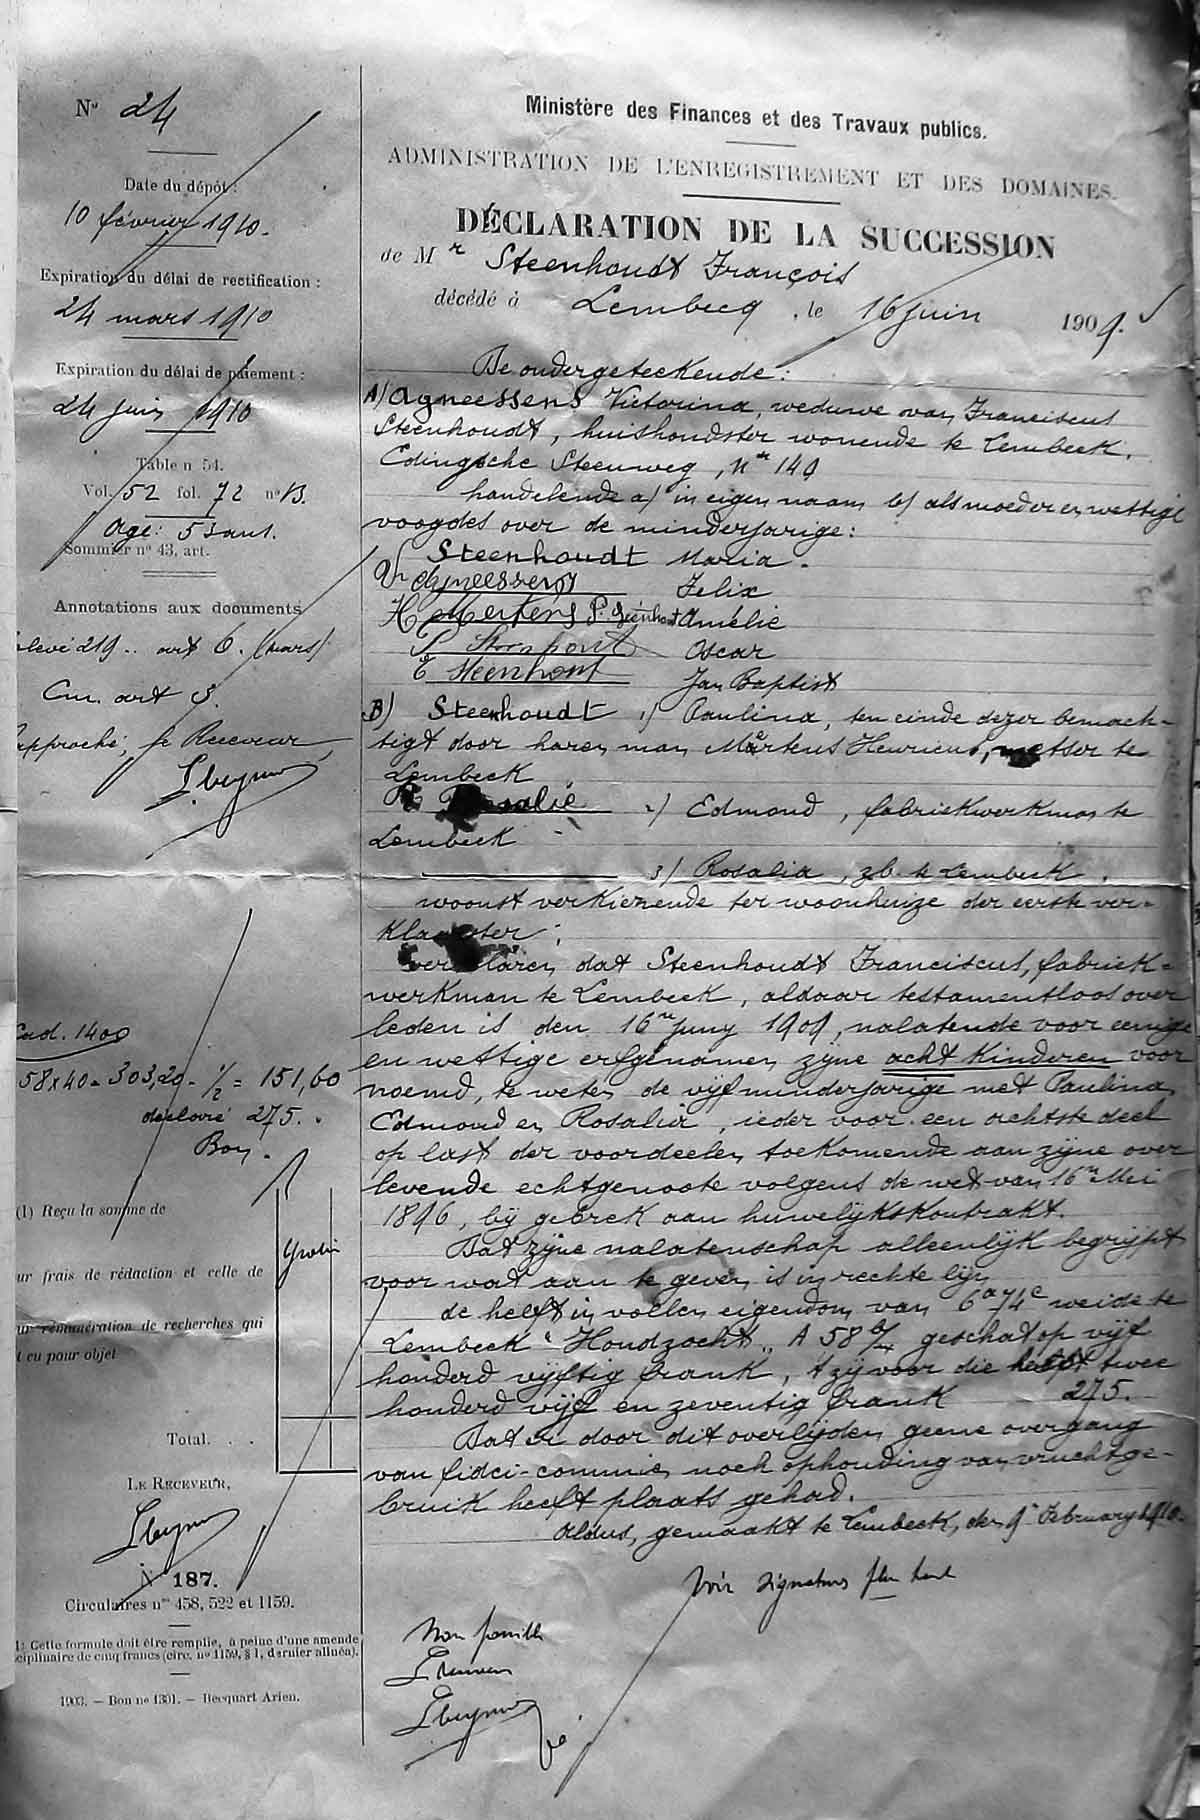 N° 24
Date du dépôt :
10 février 1910.
Expiration du délai de rectification :
24 mars 1910
Expiration du délai de paiement :
24 juin 1910
Table n 54.
Vol. 52 fol. 72 n° 13.
Age : 53 ans.
Sommier n° 43, art.
Annotations aux documents
219 .. art 6. (mars)
art 3.
le Receveur,
Cad. 1400
58x40 = 303,20 - 1/2 = 151,60
déclaré 275.
Bon.
(1) Reçu la somme de
ur frais de rédaction et celle de
ur rémunération de recherches qui
t eu pour objet
Gratis
Total. . .
LE RECEVEUR,
N° 187.
Circulaires nos 458, 522 et 1159.
1: Cette formule doit être remplie, à peine d'une amende
ciplinaire de cinq francs (circ. no 1159, § 1, dernier alinéa).
1903. — Bon no 1301. — Becquart Arien.
Ministère des Finances et des Travaux publics.
ADMINISTRATION DE L'ENREGISTREMENT ET DES DOMAINES.
DÉCLARATION DE LA SUCCESSION
de Mr Steenhoudt François
décédé à Lembecq, le 16 juin 1909.
De ondergeteekende :
A) Agneessens Victorina, weduwe van Franciscus
Steenhoudt, huishoudster wonende te Lembeek,
Edingsche Steenweg, Nr 149
handelende a) in eigen naam b) als moeder en wettige
voogdes over de minderjarige :
Steenhoudt Maria.
Vr Agneessens Felix
H Mertens P. Steenhout Amélie
P Steenhout Oscar
E Steenhout Jan Baptist
B) Steenhoudt 1) Paulina, ten einde dezer bemach-
tigt door haren man Mertens Henricus, metser te
Lembeek
R Rosalie 2) Edmond, fabriekwerkman te
Lembeek
3) Rosalia, zb. te Lembeek.
woonst verkiezende ter woonhuize der eerste ver-
klaarster ;
verklaren dat Steenhoudt Franciscus, fabriek-
werkman te Lembeek, aldaar testamentloos over
leden is den 16n Juny 1909, nalatende voor eenige
en wettige erfgenamen zijne acht kinderen voor
noemd, te weten de vijf minderjarige met Paulina,
Edmond en Rosalia, ieder voor een achtste deel
op last der voordeelen toekomende aan zijne over
levende echtgenoote volgens de wet van 16n Mei
1896, bij gebrek aan huwelijkskontrakt.
Dat zijne nalatenschap alleenlijk begrijpt
voor wat aan te geven is in rechte lijn
de helft in vollen eigendom van 6a 74c weide te
Lembeek "Houdzocht" A 58 geschat op vijf
honderd vijftig frank, 't zij voor die helft twee
honderd vijf en zeventig frank 275.-
Dat er door dit overlijden geene overgang
van fidei-commis noch ophouding van vruchtge-
bruik heeft plaats gehad.
Aldus, gemaakt te Lembeek, den 9n February 1910.
Voir signatures plus haut